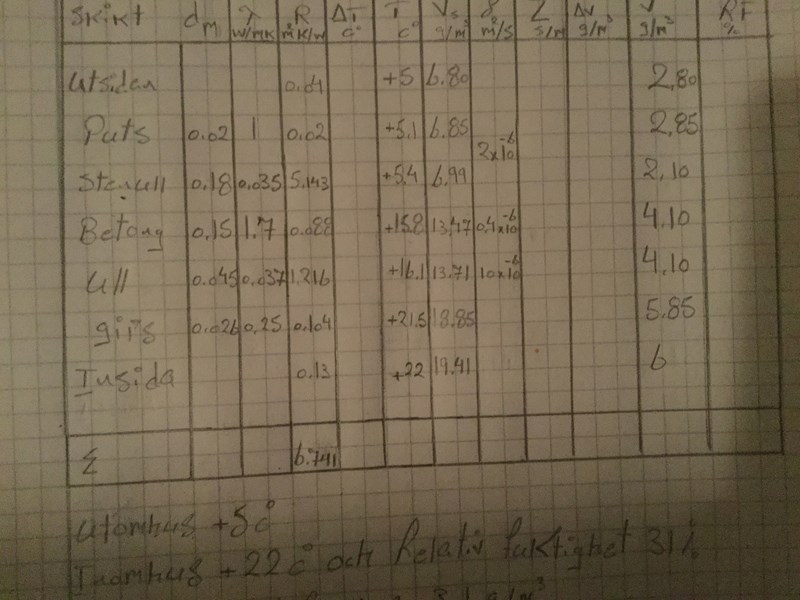 Skikt dm λ W/mK R m²K/W ΔT C° T C° Vs g/m³ δ m²/s Z s/m Δv g/m³ V g/m³ RF %
Utsidan 0.04 +5 6.80 2,80
Puts 0.02 1 0.02 +5.1 6.85 2,85
2x10⁻⁶
Stenull 0.18 0.035 5.143 +5.4 6.99 2,10
Betong 0.15 1.7 0.088 +15.8 13,47 0,4x10⁻⁶ 4.10
Ull 0.045 0.037 1.216 +16.1 13.71 10x10⁻⁶ 4.10
gips 0.026 0.25 0.104 +21.5 18.85 5.85
Insida 0.13 +22 19.41 6
Σ 6.741
utomhus +5 C°
Inomhus +22 C° och Relativ fuktighet 31%
g/m³